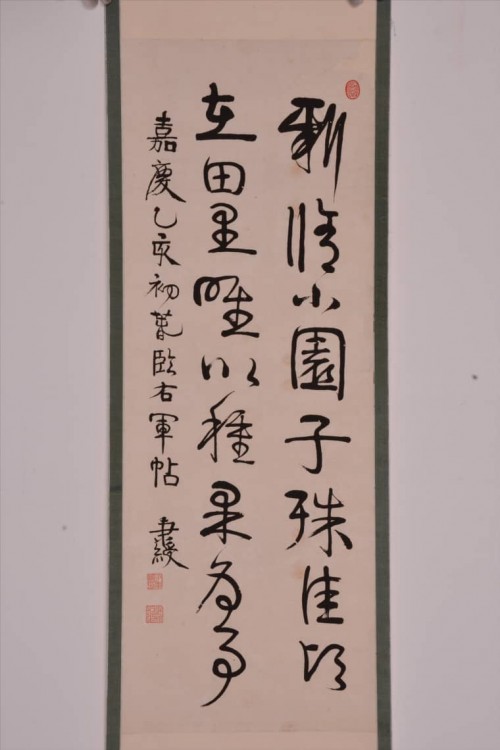 新脩小園子殊佳頃
在田里唯以種果為事
嘉慶乙亥初臨右軍帖 秉綬